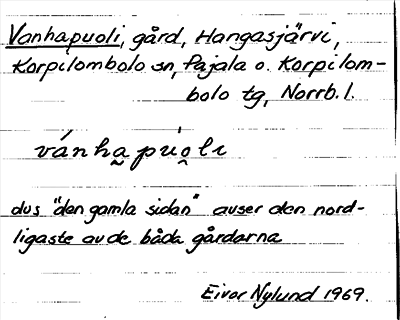 Vanhapuoli, gård, Hangasjärvi,
Korpilombolo sn, Pajala o. Korpilom-
bolo tg, Norrb. l.
vánha̰ pṷ́o̭li
dvs "den gamla sidan" avser den nord-
ligaste av de båda gårdarna
Eivor Nylund 1969.